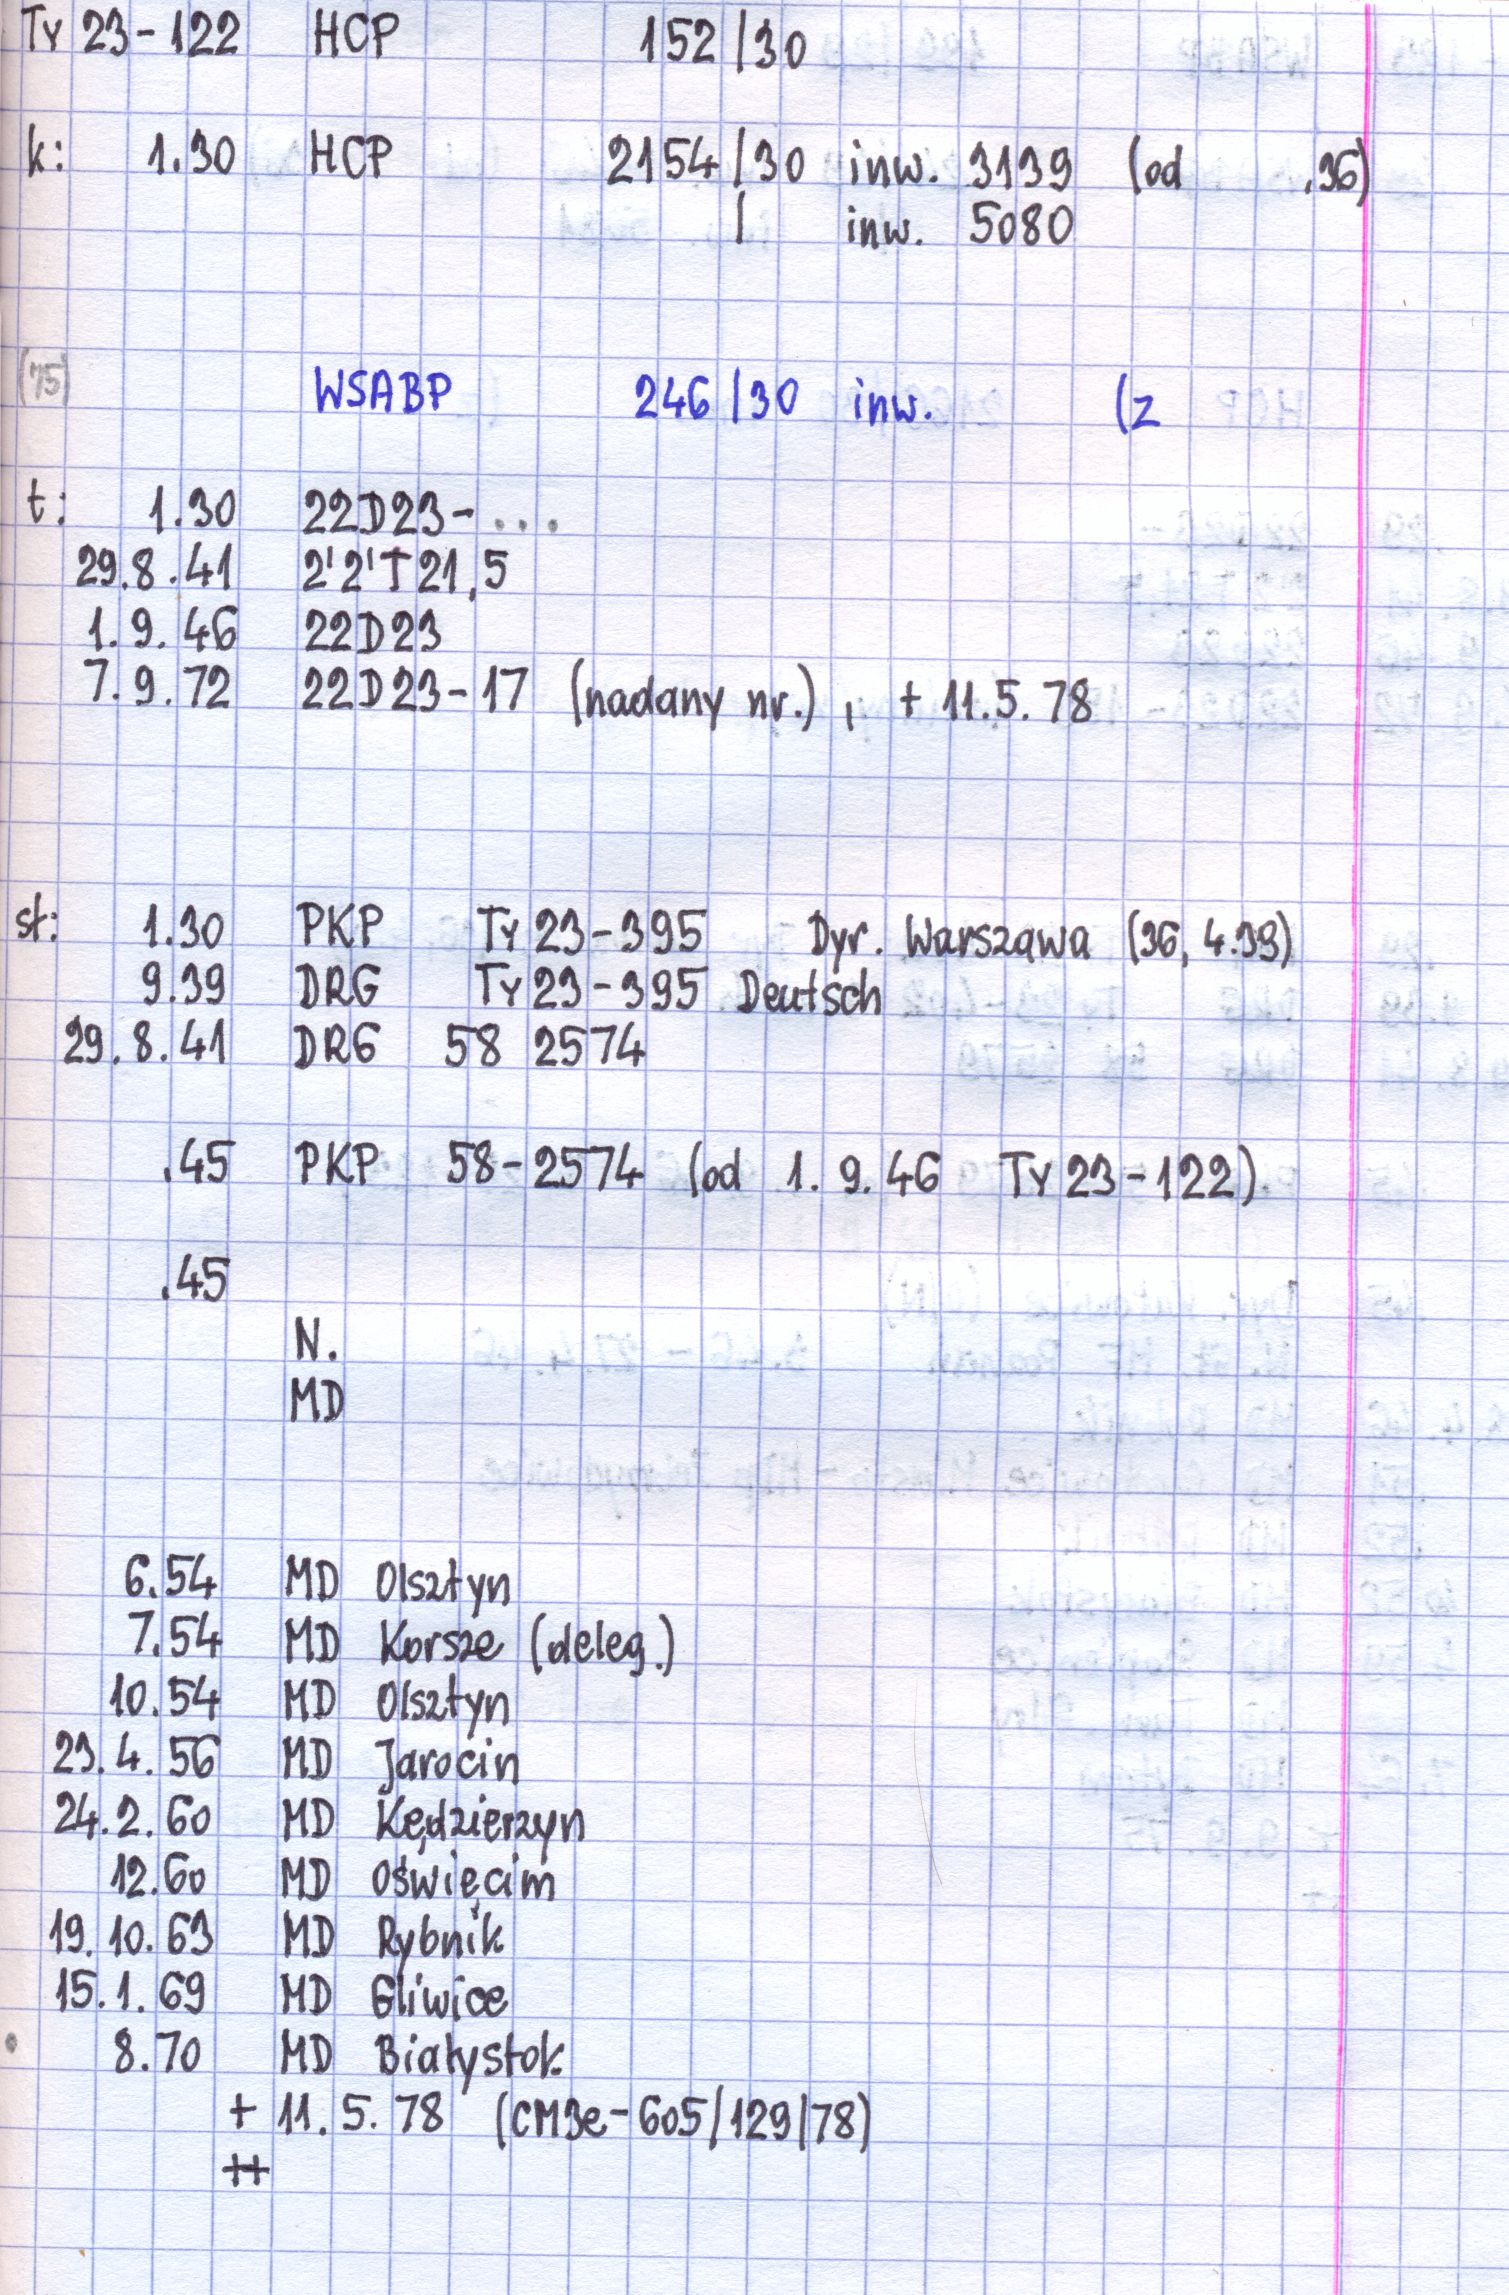 Ty 23-122 HCP 152/30
k: 1.30 HCP 2154/30 inw. 3139 (od .36)
/ inw. 5080
(75) WSABP 246/30 inw. (z
t: 1.30 22D23-...
29.8.41 2'2'T21,5
1.9.46 22D23
7.9.72 22D23-17 (nadany nr.), + 11.5.78
st: 1.30 PKP Ty 23-395 Dyr. Warszawa (36, 4.39)
9.39 DRG Ty 23-395 Deutsch
29.8.41 DRG 58 2574
.45 PKP 58-2574 (od 1.9.46 Ty 23-122)
.45
N.
MD
6.54 MD Olsztyn
7.54 MD Korsze (deleg.)
10.54 MD Olsztyn
23.4.56 MD Jarocin
24.2.60 MD Kędzierzyn
12.60 MD Oświęcim
19.10.63 MD Rybnik
15.1.69 MD Gliwice
8.70 MD Białystok
+ 11.5.78 (CM3e-605/129/78)
++